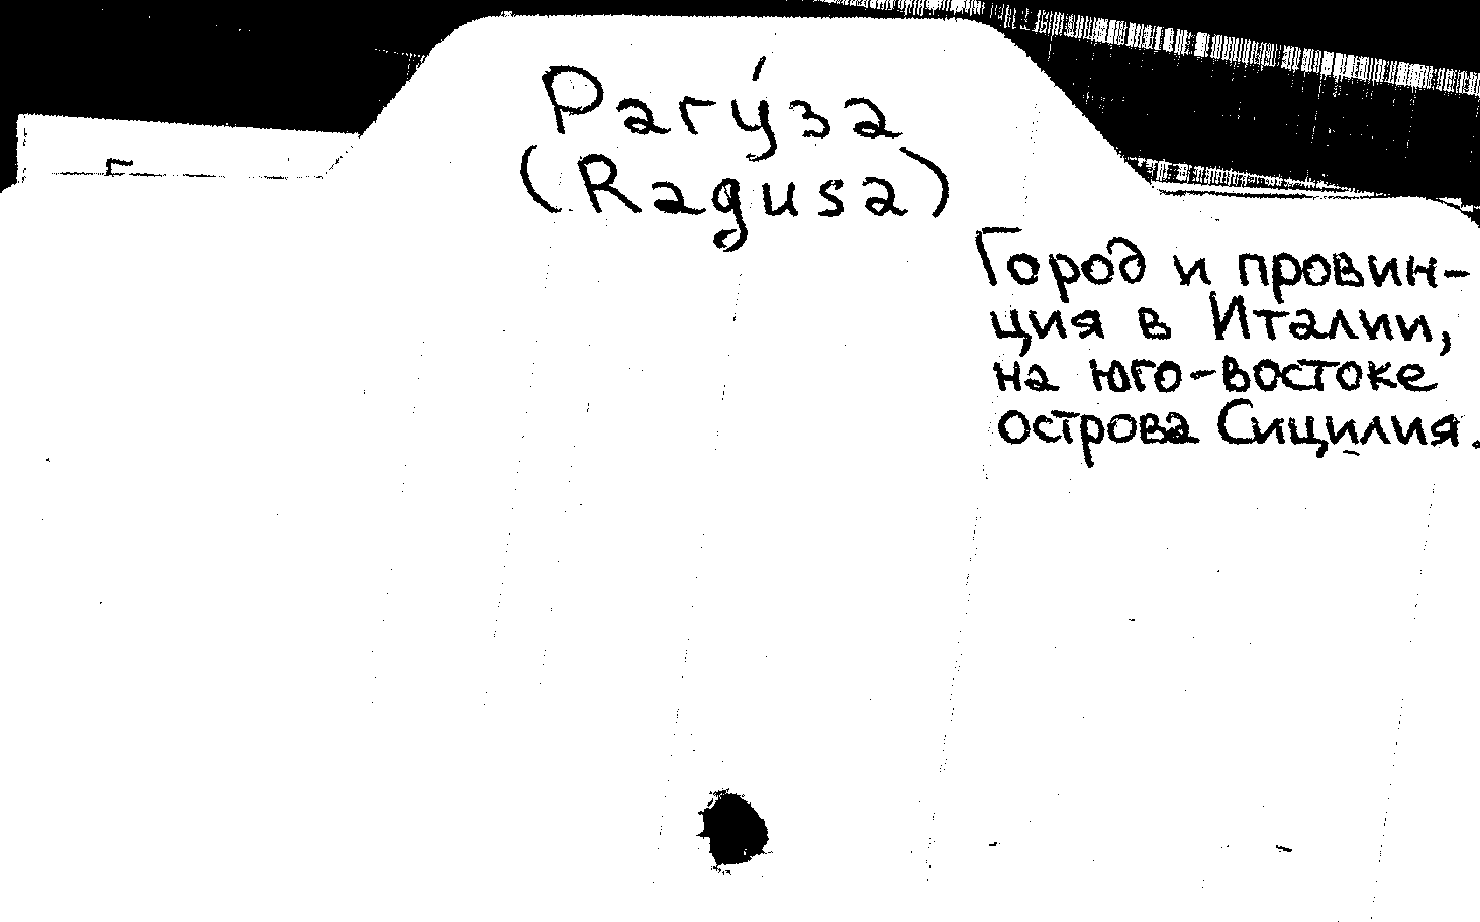 Рагу́за
(Ragusa)
Город и провин-
ция в Италии,
на юго-востоке
острова Сицилия.